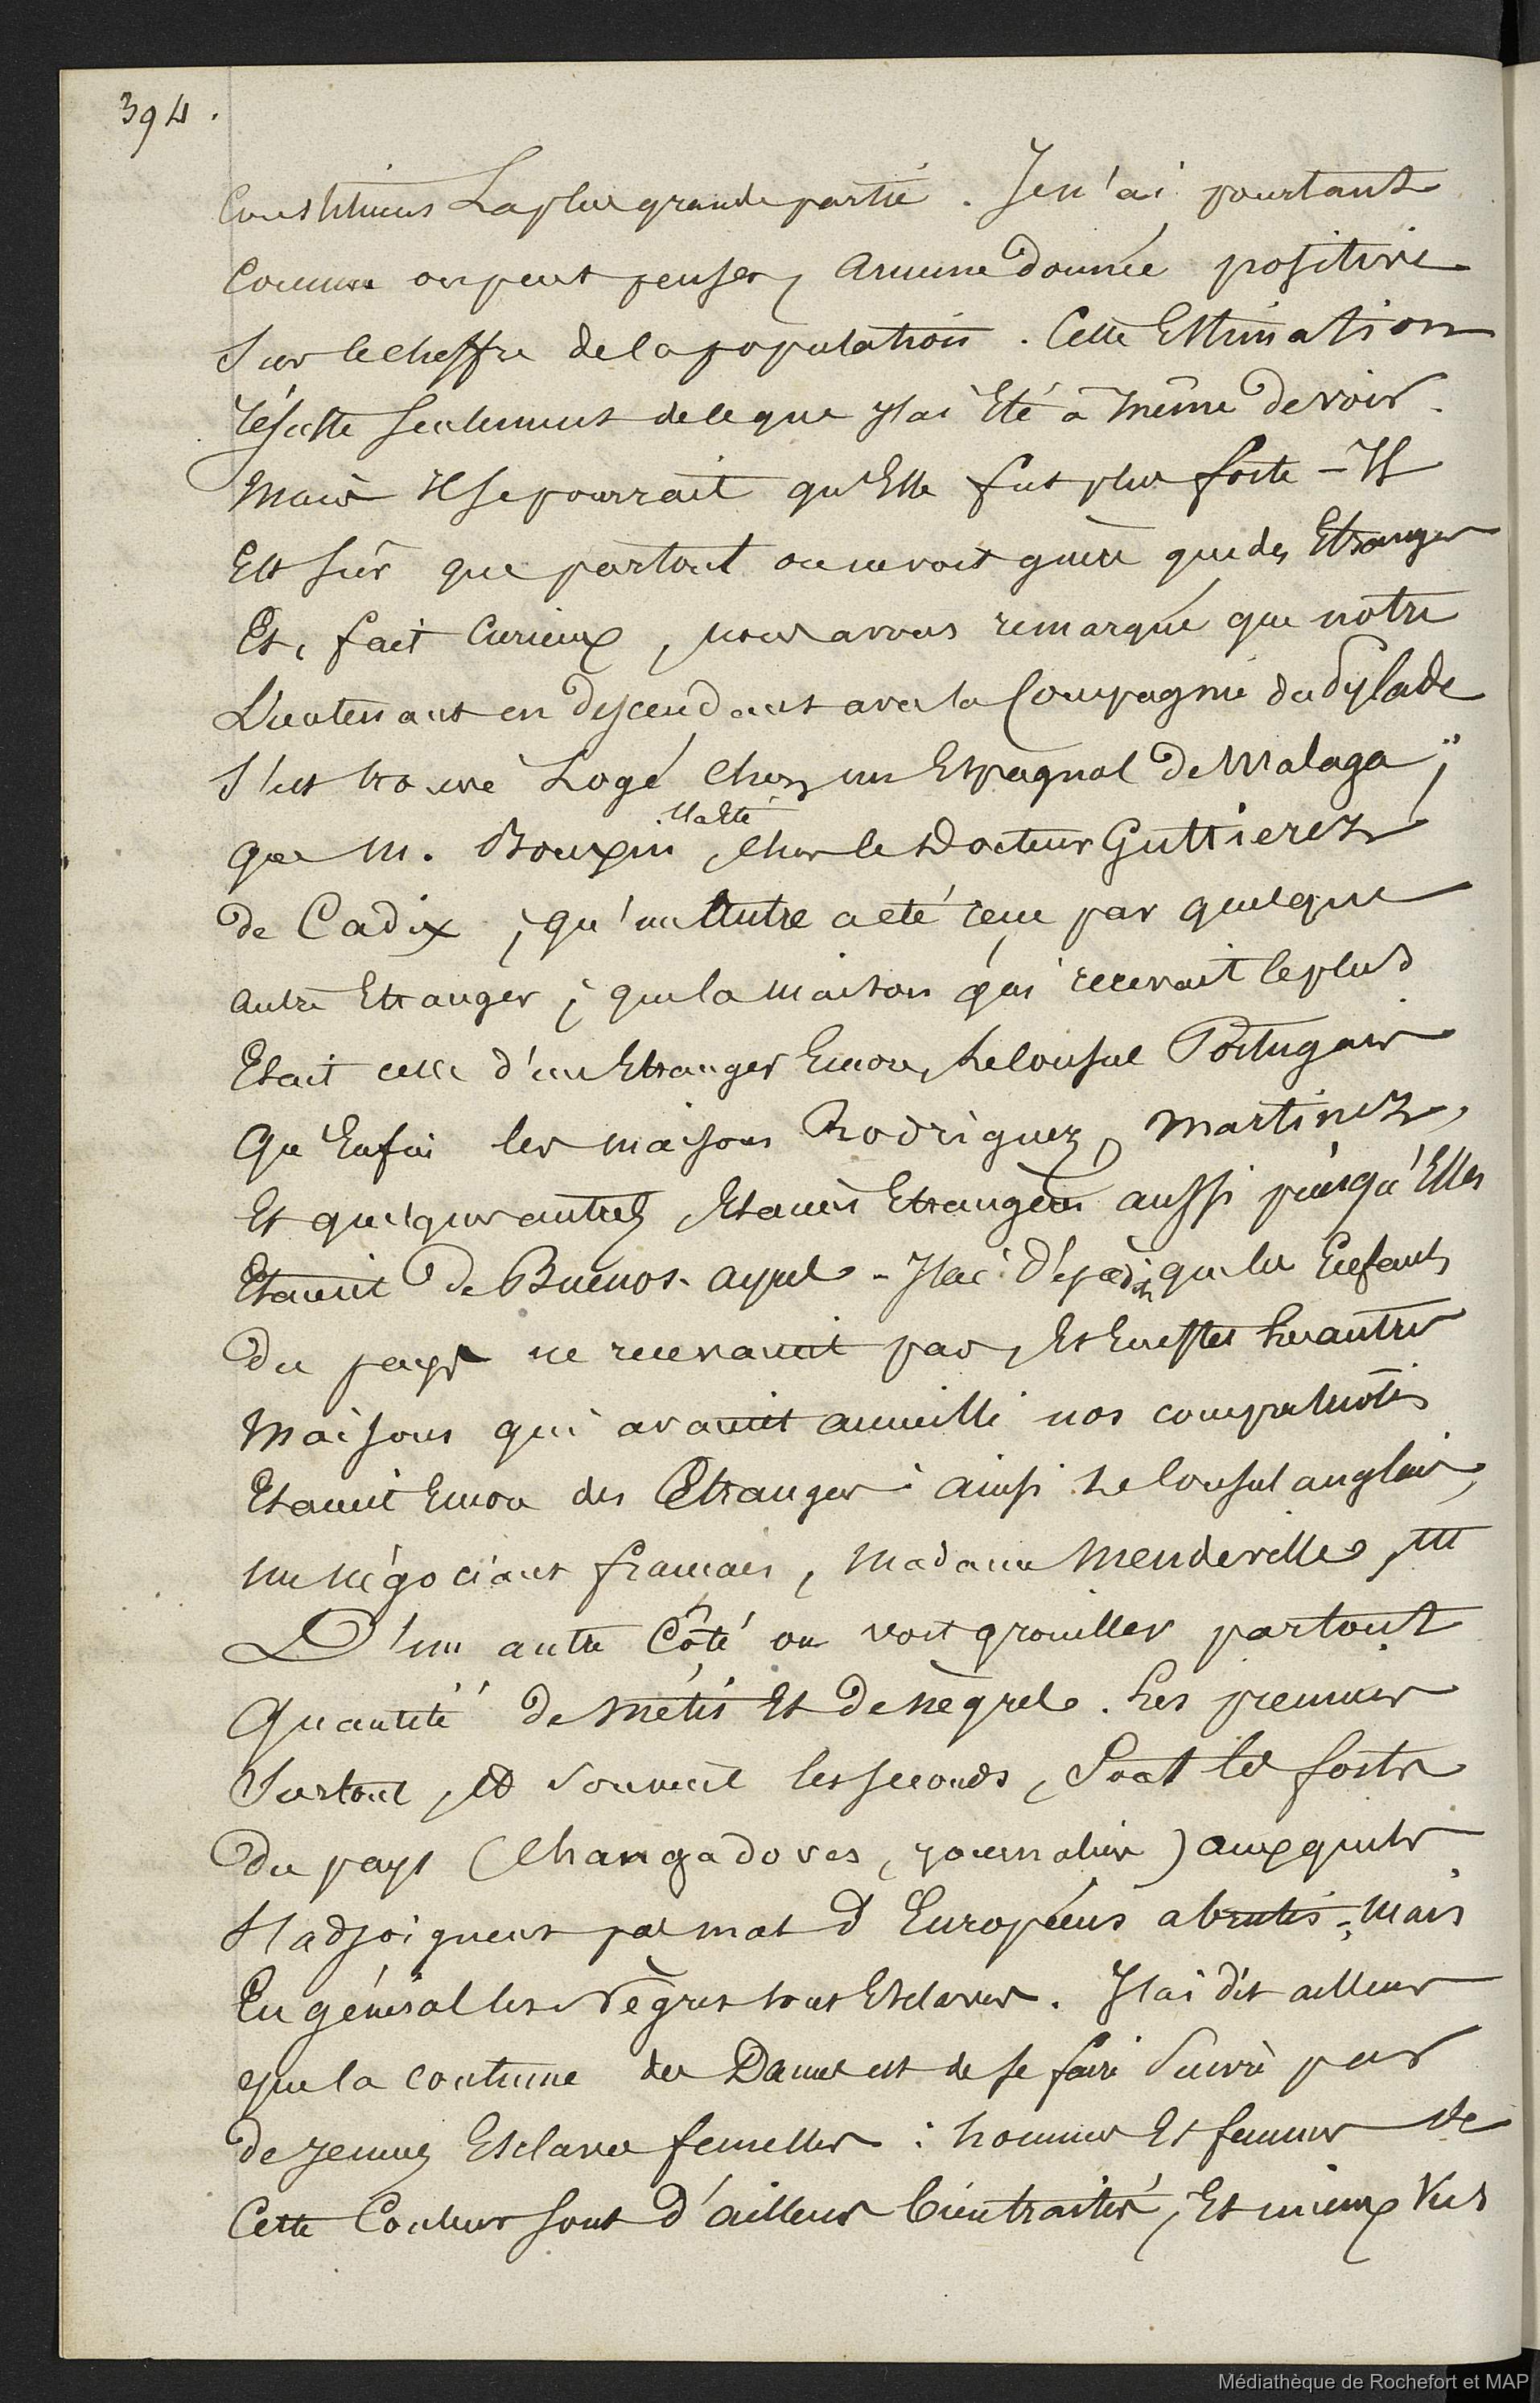 394.
Constituens La plus grande partie. Je n'ai pourtant
Comme on peut penser, aucune donnée positive
Sur le chiffre de la population. Cette Estimation
résulte Seulement de ce que j'ai Eté à même de voir.
Mais il se pourrait qu'Elle fut plus forte - Il
Est sûr que partout on ne voit guère que des Etrangers
Et, fait Curieux, nous avons remarqué que notre
Lieutenant en descendant avec la Compagnie du Pylade
S'est trouvé Logé Chez un Espagnol de Malaga;
que M. Boupin, il a Eté Chez le Docteur Guttierez
de Cadix; qu'un Autre a eté reçu par quelque
autre Etranger; que la maison qui recevait le plus
Etait celle d'un Etranger Encor, Le Consul Portugais
Qu'Enfin les maisons Rodriguez, Martinez,
Et quelques autres, Etaient Etrangères aussi puisqu'Elles
Etaient de Buenos-ayres - J'ai déjà dit que les Enfants
du pays ne recevaient pas, Et En effet les autres
Maisons qui avaient accueilli nos compatriotes
Etaient Encor des Etrangers: ainsi Le Consul anglais,
un négociant français, Madame Mendeville, &&
D'un autre Côté on voit grouiller partout
Quantité de métis Et de nègres. Les premiers
Surtout, et souvent les seconds, Sont les forts
du pays (Changadores, journaliers) auxquels
S'adjoignent pas mal d'Européens abrutis; Mais
En général les Nègres sont Esclaves. J'ai dit ailleurs
que la coutume des Dames est de se faire Suivre par
de jeunes Esclaves femelles: hommes Et femmes de
Cette Couleur sont d'ailleurs bien traités, Et mieux Vus
Médiathèque de Rochefort et MAP